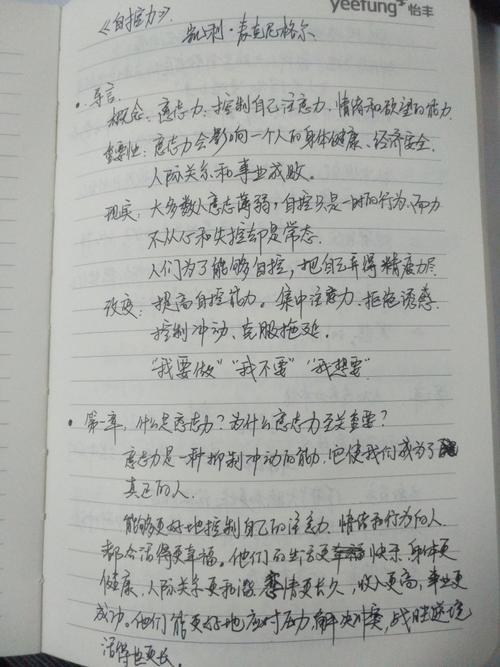 yeefung 怡丰
《自控力》
凯利·麦克尼格尔
• 导言.
概念:意志力:控制自己注意力、情绪和欲望的能力.
重要性:意志力会影响一个人的身体健康、经济安全.
人际关系和事业成败。
现实:大多数人意志薄弱,自控只是一时的行为,而力
不从心和失控却是常态.
人们为了能够自控,把自己弄得精疲力尽.
改变:提高自控能力。集中注意力、拒绝诱惑.
控制冲动、克服拖延.
“我要做”“我不要”“我想要”
• 第一章,什么是意志力?为什么意志力至关重要?
意志力是一种抑制冲动的能力,它使我们成为了
真正的人.
能够更好地控制自己的注意力、情绪和行为的人
都会活得更幸福。他们的生活更快乐,身体更
健康,人际关系更和谐,恋情更长久,收入更高,事业更
成功。他们能更好地应对压力,解决冲突,战胜逆境
活得也更长.